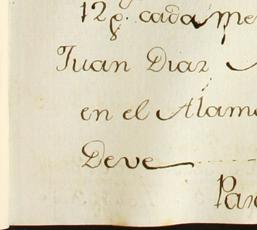 12 p. cada me
Juan Diaz
en el Alam
Deve
Pa